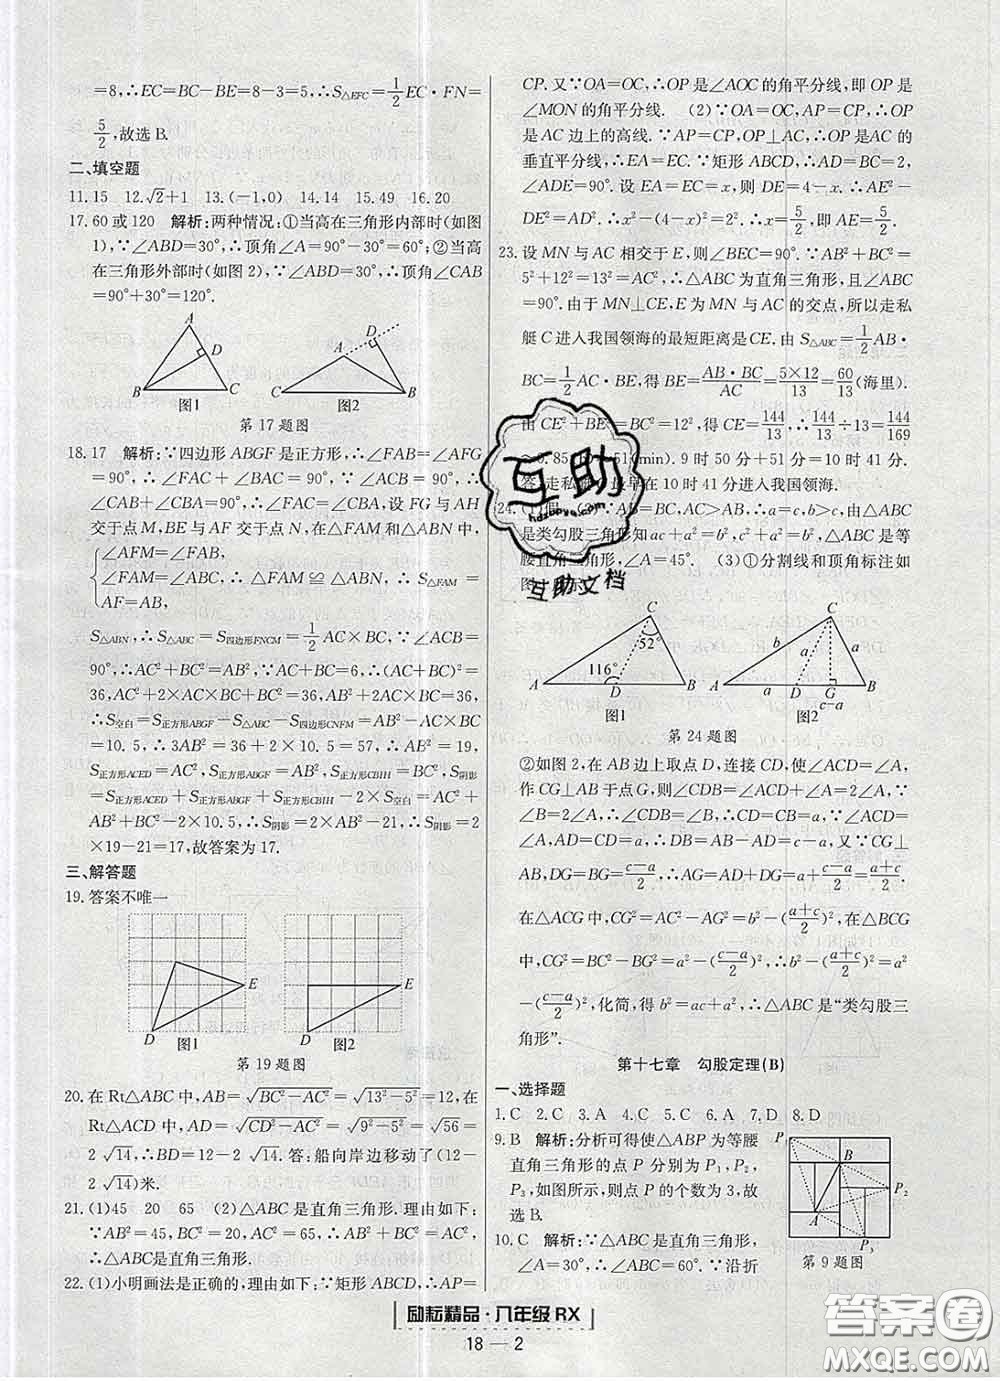 =8,∴EC=BC-BE=8-3=5,∴S△EFC=1/2EC·FN=
5/2,故选B.
二、填空题
11.15 12.√2+1 13.(-1,0) 14.14 15.49 16.20
17.60或120 解析:两种情况:①当高在三角形内部时(如图
1),∵∠ABD=30°,∴顶角∠A=90°-30°=60°;②当高
在三角形外部时(如图2),∵∠ABD=30°,∴顶角∠CAB
=90°+30°=120°.
A D B C 图1
D A C B 图2
第17题图
18.17 解析:∵四边形ABGF是正方形,∴∠FAB=∠AFG
=90°,∴∠FAC+∠BAC=90°,∵∠ACB=90°,∴
∠CAB+∠CBA=90°,∴∠FAC=∠CBA,设FG与AH
交于点M,BE与AF交于点N,在△FAM和△ABN中,
∠AFM=∠FAB,
∠FAM=∠ABC,∴△FAM≌△ABN,∴S△FAM=
AF=AB,
S△ABN,∴S△ABC=S四边形FNCM=1/2AC×BC,∵∠ACB=
90°,∴AC²+BC²=AB²,∵AC+BC=6,∴(AC+BC)²=
36,∴AC²+BC²+2AC×BC=36,AB²+2AC×BC=36,
∴S空白=S正方形ABGF-S△ABC-S四边形CNFM=AB²-AC×BC=
10.5,∴3AB²=36+2×10.5=57,∴AB²=19,
S正方形ACED=AC²,S正方形ABGF=AB²,S正方形CBIH=BC²,S阴影
=S正方形ACED+S正方形ABGF+S正方形CBIH-2×S空白=AC²+
AB²+BC²-2×10.5,∴S阴影=2×AB²-21,∴S阴影=2
×19-21=17,故答案为17.
三、解答题
19.答案不唯一
E D 图1
E D 图2
第19题图
20.在Rt△ABC中,AB=√BC²-AC²=√13²-5²=12,在
Rt△ACD中,AD=√CD²-AC²=√9²-5²=√56=
2√14,∴BD=12-2√14.答:船向岸边移动了(12-
2√14)米.
21.(1)45 20 65 (2)△ABC是直角三角形.理由如下:
∵AB²=45,BC²=20,AC²=65,∴AB²+BC²=AC²,
∴△ABC是直角三角形.
22.(1)小明画法是正确的,理由如下:∵矩形ABCD,∴AP=
CP.又∵OA=OC,∴OP是∠AOC的角平分线,即OP是
∠MON的角平分线. (2)∵OA=OC,AP=CP,∴OP
是AC边上的高线.∵AP=CP,OP⊥AC,∴OP是AC的
垂直平分线,∴EA=EC.∵矩形ABCD,∴AD=BC=4,
∠ADE=90°.设EA=EC=x,则DE=4-x,∴AE²-
DE²=AD²,∴x²-(4-x)²=2²,∴x=5/2,即AE=5/2.
23.设MN与AC相交于E,则∠BEC=90°.∵AB²+BC²=
5²+12²=13²=AC²,∴△ABC为直角三角形,且∠ABC
=90°.由于MN⊥CE,E为MN与AC的交点,所以走私
艇C进入我国领海的最短距离是CE.由S△ABC=1/2AB·
BC=1/2AC·BE,得BE=AB·BC/AC=5×12/13=60/13(海里).
由CE²+BE²=BC²=12²,得CE=144/13,∴144/13÷13=144/169
51(min).9时50分+51分=10时41分.
走私艇C最早在10时41分进入我国领海.
24. AB=BC,AC>AB,∴a=c,b>c,由△ABC
是类勾股三角形知ac+a²=b²,c²+a²=b²,∴△ABC是等
腰直角三角形,∠A=45°. (3)①分割线和顶角标注如
图
C 52° 116° A D B 图1
C b a a A a D G B c-a 图2
第24题图
②如图2,在AB边上取点D,连接CD,使∠ACD=∠A,
作CG⊥AB于点G,则∠CDB=∠ACD+∠A=2∠A,∵
∠B=2∠A,∴∠CDB=∠B,∴CD=CB=a,∵∠ACD=
∠A,AD=CD=a,∴DB=AB-AD=c-a,又∵CG⊥
AB,DG=BG=c-a/2,∴AG=AD+DG=a+c-a/2=a+c/2.
在△ACG中,CG²=AC²-AG²=b²-(a+c/2)²,在△BCG
中,CG²=BC²-BG²=a²-(c-a/2)²,∴b²-(a+c/2)²=a²
-(c-a/2)²,化简,得b²=ac+a²,∴△ABC是“类勾股三
角形”.
第十七章 勾股定理(B)
一、选择题
1.C 2.C 3.C 4.A 5.C 6.B 7.D 8.D
9.B 解析:分析可得使△ABP为等腰
直角三角形的点P分别为P₁、P₂、
P₃,如图所示,则点P的个数为3,故
选B.
P₁ B P₂ A P₃
第9题图
10.C 解析:∵△ABC是直角三角形,
∠A=30°,∴∠B=60°.∵沿折
励耘精品·八年级RX
18—2
互助
hdzboye.com
互助文档
答案圈
MXQE.COM